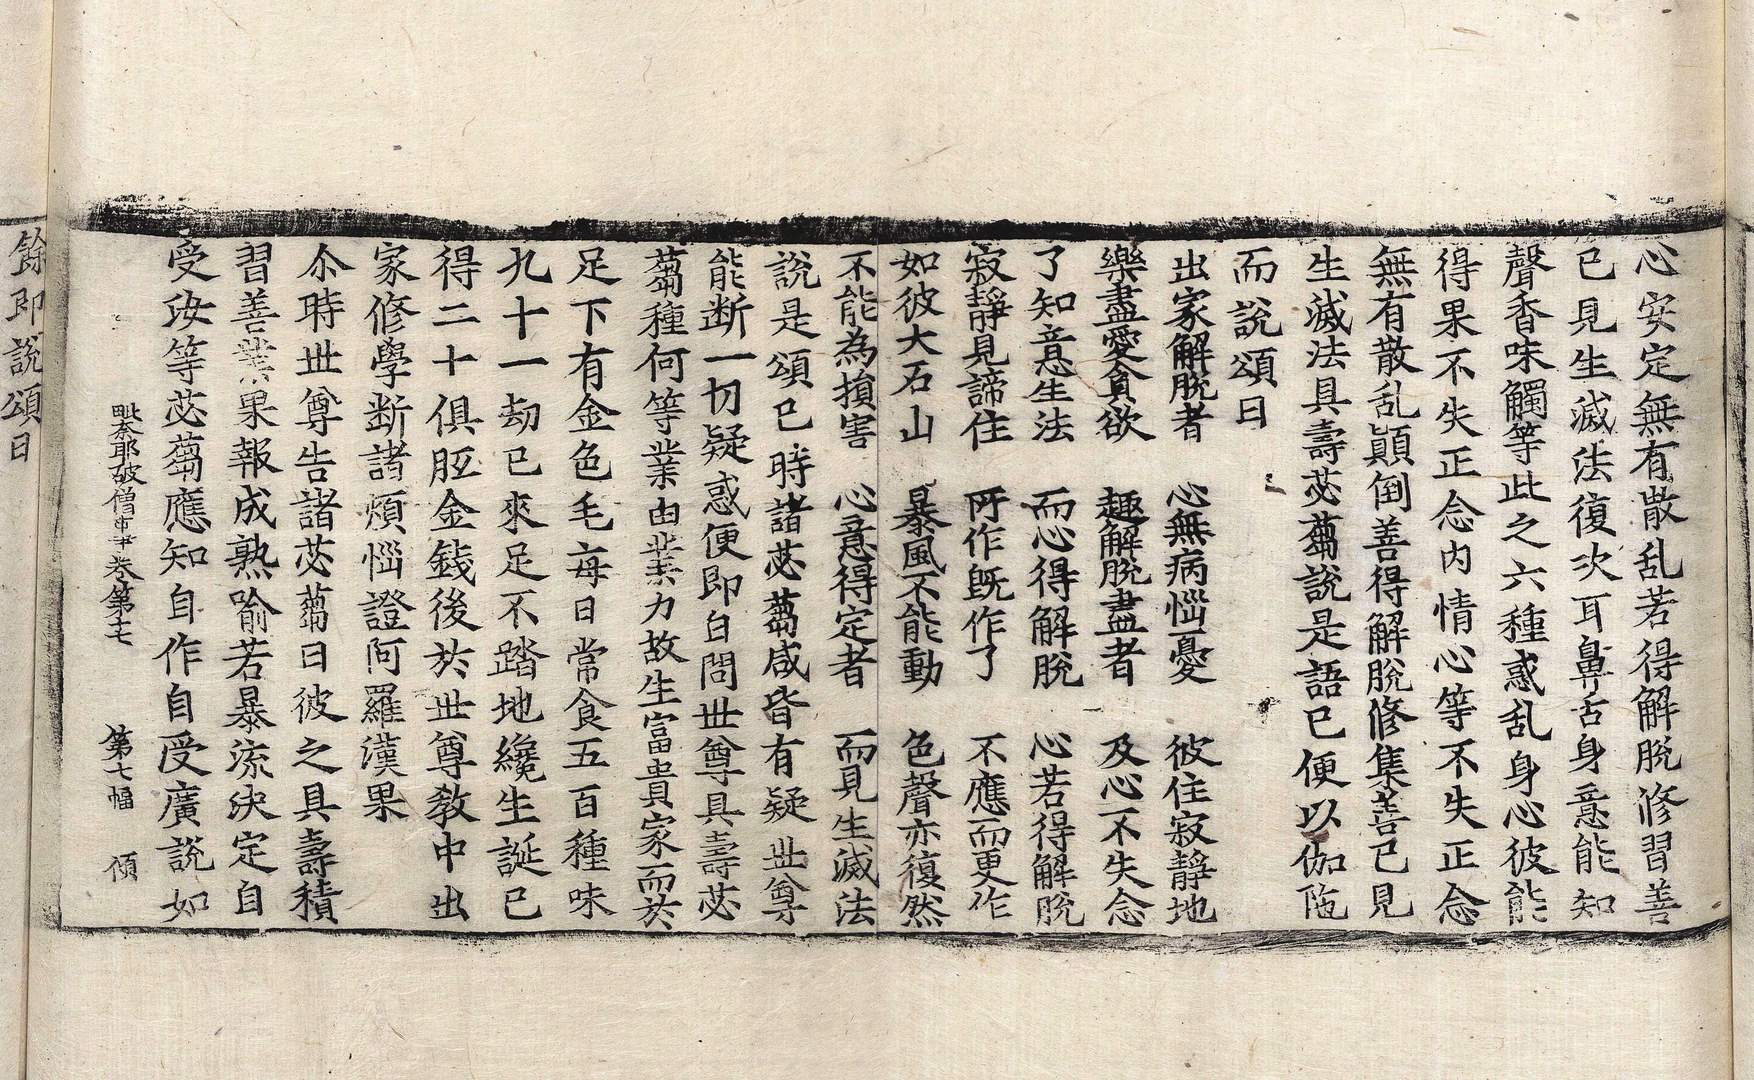 心安定無有散乱若得解脫修習善
已見生滅法復次耳鼻舌身意能知
聲香味觸等此之六種惑乱身心彼能
得果不失正念内情心等不失正念
無有散乱顚倒善得解脫修集善已見
生滅法具壽苾蒭說是語已便以伽陁
而說頌曰
出家解脫者　心無病惱憂　彼住寂靜地
樂盡愛貪欲　趣解脫盡者　及心不失念
了知意生法　而心得解脫　心若得解脫
寂靜見諦住　所作既作了　不應而更作
如彼大石山　暴風不能動　色聲亦復然
不能為損害　心意得定者　而見生滅法
說是頌已時諸苾蒭咸皆有疑世尊
能断一切疑惑便即白問世尊具壽苾
蒭種何等業由業力故生富貴家而於
足下有金色毛每日常食五百種味
九十一劫已來足不踏地纔生誕已
得二十俱胝金錢後於世尊教中出
家修學断諸煩惱證阿羅漢果
尒時世尊告諸苾蒭曰彼之具壽積
習善業果報成熟喻若暴流決定自
受汝等苾蒭應知自作自受廣說如
毗奈耶破僧事卷第十七　第七幅　傾
餘即說頌曰